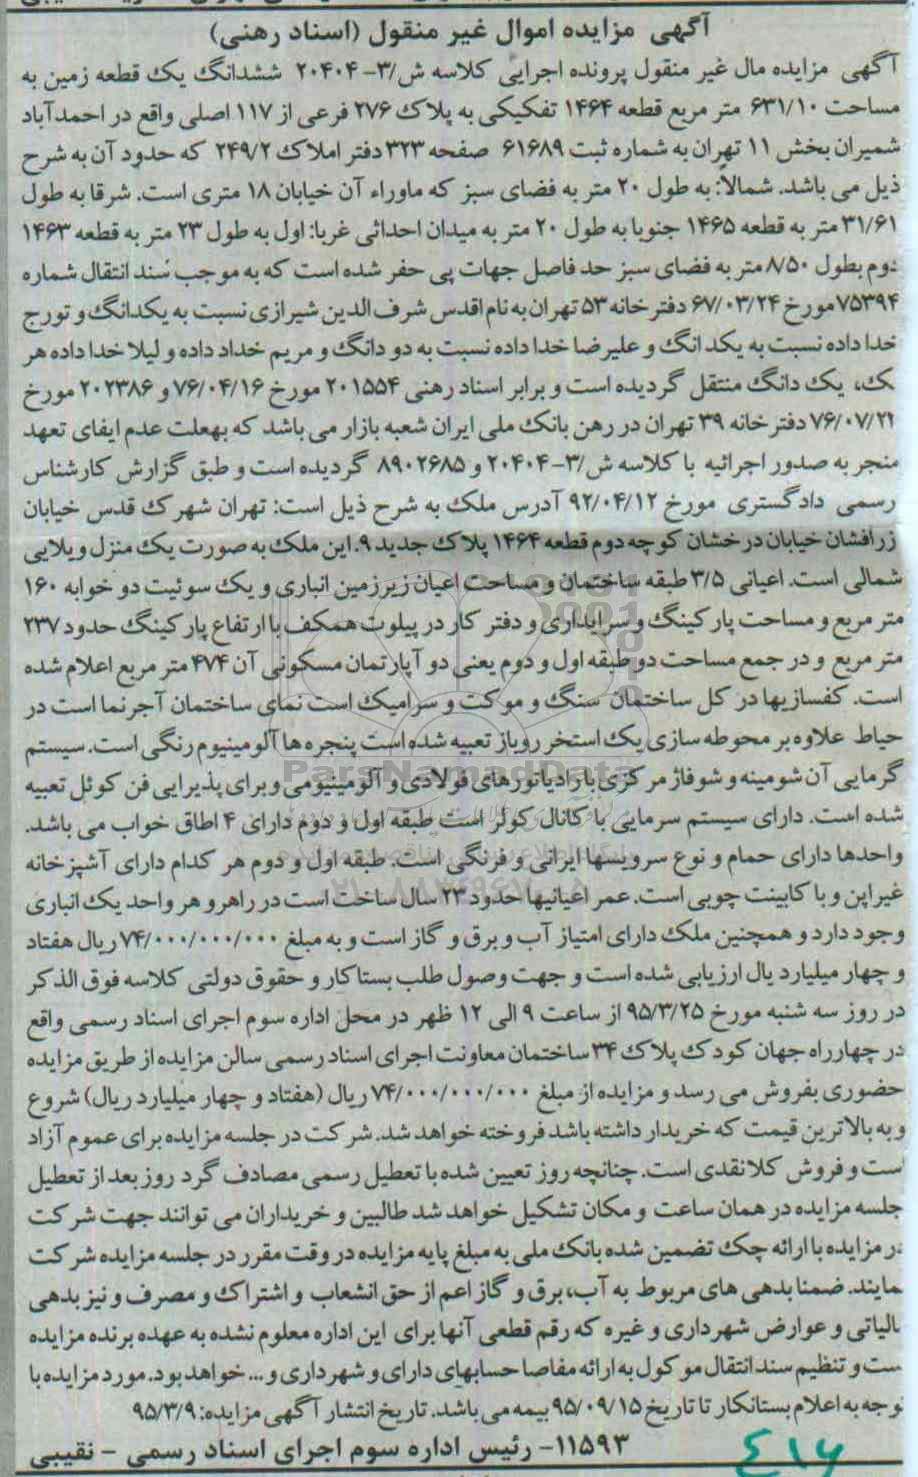 آگهی مزایده اموال غیر منقول (اسناد رهنی)
آگهی مزایده مال غیر منقول پرونده اجرایی کلاسه ش/۳-۲۰۴۰۴ ششدانگ یک قطعه زمین به
مساحت ۶۳۱/۱۰ متر مربع قطعه ۱۴۶۴ تفکیکی به پلاک ۲۷۶ فرعی از ۱۱۷ اصلی واقع در احمدآباد
شمیران بخش ۱۱ تهران به شماره ثبت ۶۱۶۸۹ صفحه ۳۲۳ دفتر املاک ۲۴۹/۲ که حدود آن به شرح
ذیل می باشد. شمالاً: به طول ۲۰ متر به فضای سبز که ماوراء آن خیابان ۱۸ متری است. شرقا به طول
۳۱/۶۱ متر به قطعه ۱۴۶۵ جنوبا به طول ۲۰ متر به میدان احداثی غربا: اول به طول ۲۳ متر به قطعه ۱۴۶۳
دوم بطول ۸/۵۰ متر به فضای سبز حد فاصل جهات پی حفر شده است که به موجب سند انتقال شماره
۷۵۳۹۴ مورخ ۶۷/۰۳/۲۴ دفتر خانه ۵۳ تهران به نام اقدس شرف الدین شیرازی نسبت به یکدانگ و تورج
خدا داده نسبت به یکد انگ و علیرضا خدا داده نسبت به دو دانگ و مریم خداد داده و لیلا خدا داده هر
یک، یک دانگ منتقل گردیده است و برابر اسناد رهنی ۲۰۱۵۵۴ مورخ ۷۶/۰۴/۱۶ و ۲۰۲۳۸۶ مورخ
۷۶/۰۷/۲۲ دفتر خانه ۳۹ تهران در رهن بانک ملی ایران شعبه بازار می باشد که بهعلت عدم ایفای تعهد
منجر به صدور اجرائیه با کلاسه ش/۳-۲۰۴۰۴ و ۸۹۰۲۶۸۵ گردیده است و طبق گزارش کارشناس
رسمی دادگستری مورخ ۹۲/۰۴/۱۲ آدرس ملک به شرح ذیل است: تهران شهرک قدس خیابان
زرافشان خیابان درخشان کوچه دوم قطعه ۱۴۶۴ پلاک جدید ۹. این ملک به صورت یک منزل ویلایی
شمالی است. اعیانی ۳/۵ طبقه ساختمان و مساحت اعیان زیرزمین انباری و یک سوئیت دو خوابه ۱۶۰
متر مربع و مساحت پارکینگ و سرایداری و دفتر کار در پیلوت همکف با ارتفاع پارکینگ حدود ۲۳۷
متر مربع و در جمع مساحت دو طبقه اول و دوم یعنی دو آپارتمان مسکونی آن ۴۷۴ متر مربع اعلام شده
است. کفسازیها در کل ساختمان سنگ و موکت و سرامیک است نمای ساختمان آجر نما است در
حیاط علاوه بر محوطه سازی یک استخر روباز تعبیه شده است پنجره ها آلومینیوم رنگی است. سیستم
گرمایی آن شومینه و شوفاژ مرکزی با رادیاتورهای فولادی و آلومینیومی و برای پذیرایی فن کوئل تعبیه
شده است. دارای سیستم سرمایی با کانال کولر است طبقه اول و دوم دارای ۴ اطاق خواب می باشد.
واحدها دارای حمام و نوع سرویسها ایرانی و فرنگی است. طبقه اول و دوم هر کدام دارای آشپزخانه
غیراپن و با کابینت چوبی است. عمر اعیانیها حدود ۲۳ سال ساخت است در راهرو هر واحد یک انباری
وجود دارد و همچنین ملک دارای امتیاز آب و برق و گاز است و به مبلغ ۷۴/۰۰۰/۰۰۰/۰۰۰ ریال هفتاد
و چهار میلیارد یال ارزیابی شده است و جهت وصول طلب بستاکار و حقوق دولتی کلاسه فوق الذکر
در روز سه شنبه مورخ ۹۵/۳/۲۵ از ساعت ۹ الی ۱۲ ظهر در محل اداره سوم اجرای اسناد رسمی واقع
در چهارراه جهان کودک پلاک ۳۴ ساختمان معاونت اجرای اسناد رسمی سالن مزایده از طریق مزایده
حضوری بفروش می رسد و مزایده از مبلغ ۷۴/۰۰۰/۰۰۰/۰۰۰ ریال (هفتاد و چهار میلیارد ریال) شروع
و به بالاترین قیمت که خریدار داشته باشد فروخته خواهد شد. شرکت در جلسه مزایده برای عموم آزاد
است و فروش کلا نقدی است. چنانچه روز تعیین شده با تعطیل رسمی مصادف گرد روز بعد از تعطیل
جلسه مزایده در همان ساعت و مکان تشکیل خواهد شد طالبین و خریداران می توانند جهت شرکت
در مزایده با ارائه چک تضمین شده بانک ملی به مبلغ پایه مزایده در وقت مقرر در جلسه مزایده شرکت
نمایند. ضمنا بدهی های مربوط به آب، برق و گاز اعم از حق انشعاب و اشتراک و مصرف و نیز بدهی
مالیاتی و عوارض شهرداری و غیره که رقم قطعی آنها برای این اداره معلوم نشده به عهده برنده مزایده
است و تنظیم سند انتقال موکول به ارائه مفاصا حسابهای دارای و شهرداری و... خواهد بود. مورد مزایده با
توجه به اعلام بستانکار تا تاریخ ۹۵/۰۹/۱۵ بیمه می باشد. تاریخ انتشار آگهی مزایده: ۹۵/۳/۹
۱۱۵۹۳- رئیس اداره سوم اجرای اسناد رسمی - نقیبی
ParsNamadData